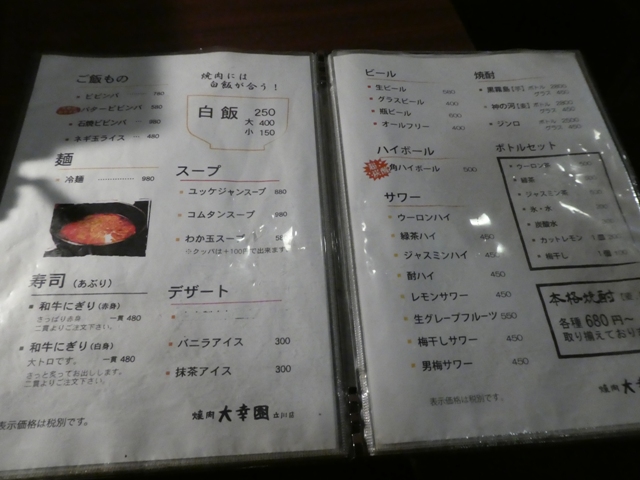 ご飯もの
ビビンバ 780
バタービビンバ 580
石焼ビビンバ 980
ネギ玉ライス 480
麺
冷麺 980
寿司(あぶり)
和牛にぎり(赤身)
さっぱり赤身 一貫 480
二貫よりご注文下さい。
和牛にぎり(白身)
大トロです。 一貫 480
さっと炙ってお出しします。
二貫よりご注文下さい。
表示価格は税別です。
焼肉には
白飯が合う!
白飯 250
大 400
小 150
スープ
ユッケジャンスープ 880
コムタンスープ
わか玉スープ
※クッパは+100円で出来ます
デザート
バニラアイス 300
抹茶アイス 300
焼肉 大幸園 立川店
ビール
生ビール
グラスビール 400
瓶ビール
オールフリー 400
ハイボール
角ハイボール 550
サワー
ウーロンハイ 450
緑茶ハイ 450
ジャスミンハイ 450
酎ハイ 450
レモンサワー 450
生グレープフルーツ 550
梅干しサワー 450
男梅サワー 450
表示価格は税別です。
焼酎
黒霧島【芋】 ボトル 2800
グラス 450
神の河【麦】 ボトル 2500
グラス 450
ジンロ ボトル 2500
グラス 450
ボトルセット
ウーロン茶
緑茶
ジャスミン茶
氷・水
炭酸水
カットレモン 1個
梅干し 1個
本格焼酎
各種 680円~
取り揃えており
焼肉 大